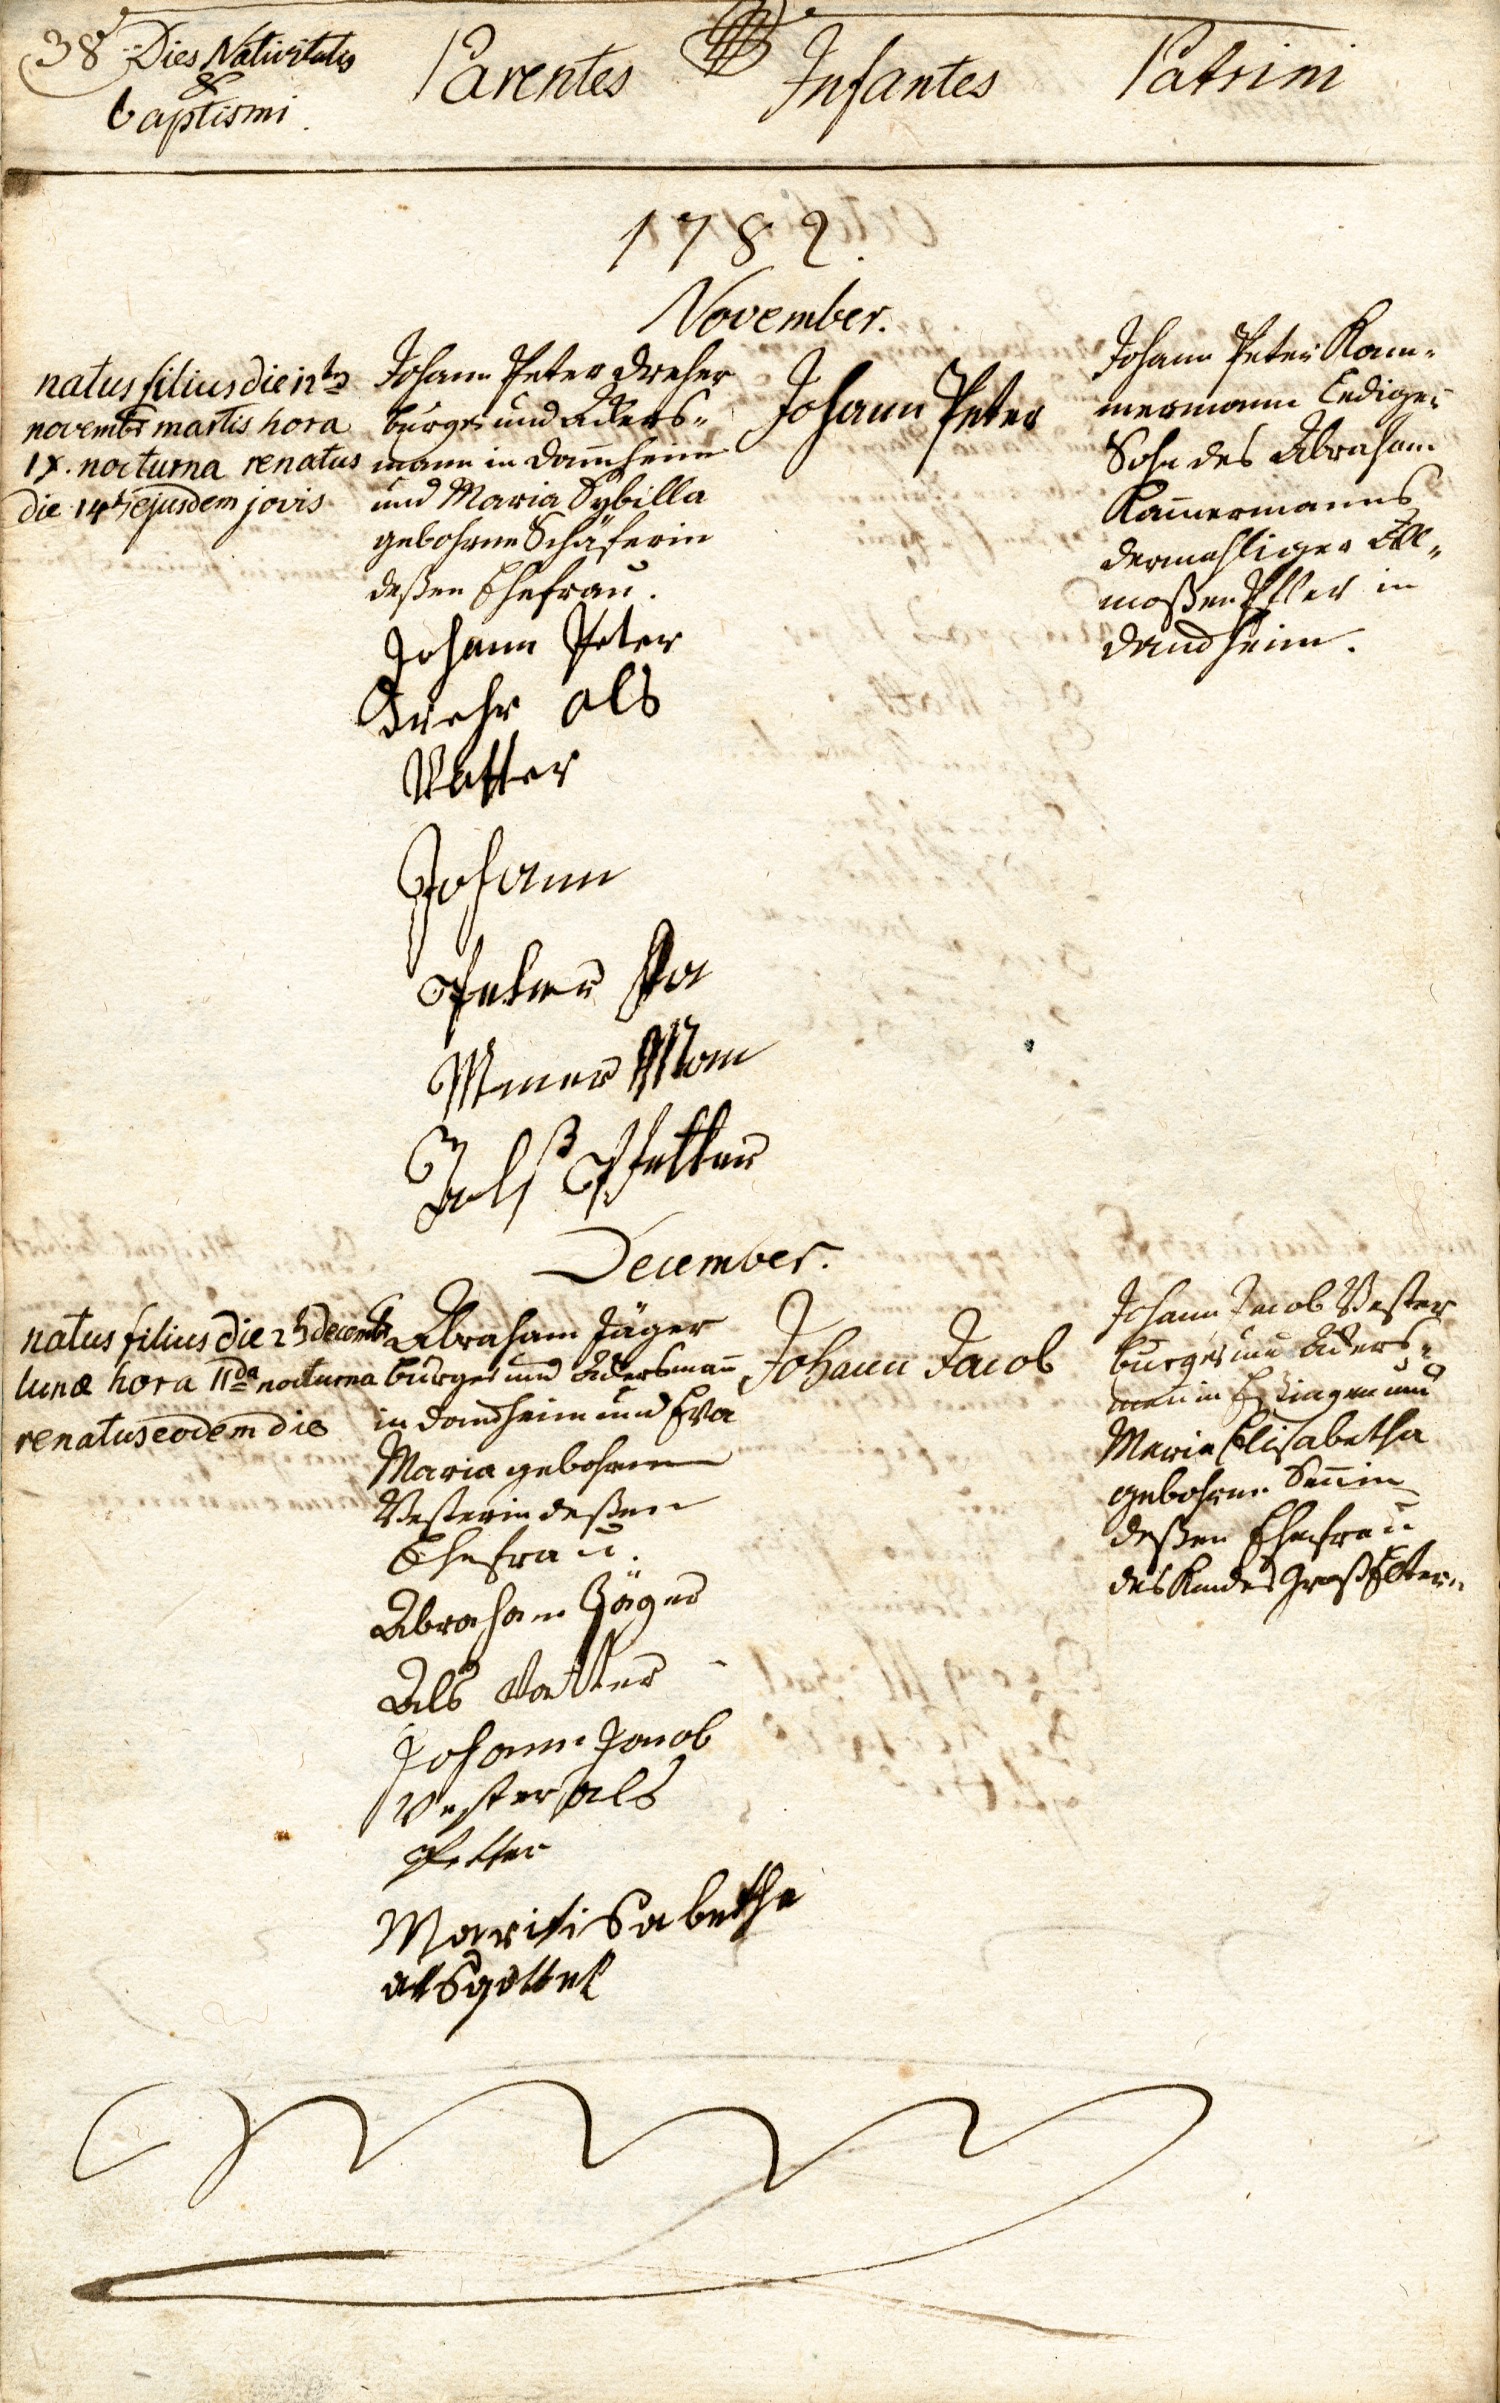 38 Dies Nativitatis
&
baptismi.
Parentes
Infantes
Patrini
1782.
November.
natus filius die 12ten
novembr martis hora
IX. nocturna renatus
die 14t ejusdem jovis
Johann Peter Dreher
burger und Ackers-
mann in Dam̄heim
und Maria Sybilla
gebohrne Schäferin
deßen Ehefrau.
Johann Peter
Drehr als
Vatter
Johann
Peter Ka
Mmer Man
Als Pfetter
Johann Peter
Johann Peter Kam-
mermann Lediger
Sohn des Abraham
Kam̄ermanns
dermahliger All-
moßen Pfleer in
Damdheim.
December.
natus filius die 2t decembr
lunæ hora IIda nocturna
renatus eodem die
Abraham Jäger
burger und Ackersman̄
in Damdheim und Eva
Maria gebohrne
Vesterin deßen
Ehefrau.
Abraham Jäger
Als Vatter
Johann Jacob
Vester als
Petter
Marilisabetha
als gettel
Johann Jacob
Johann Jacob Vester
burger und Ackers-
man in Eßingen und
Maria Elisabetha
gebohrne
deßen Ehefrau
des Kindes GroßEltern